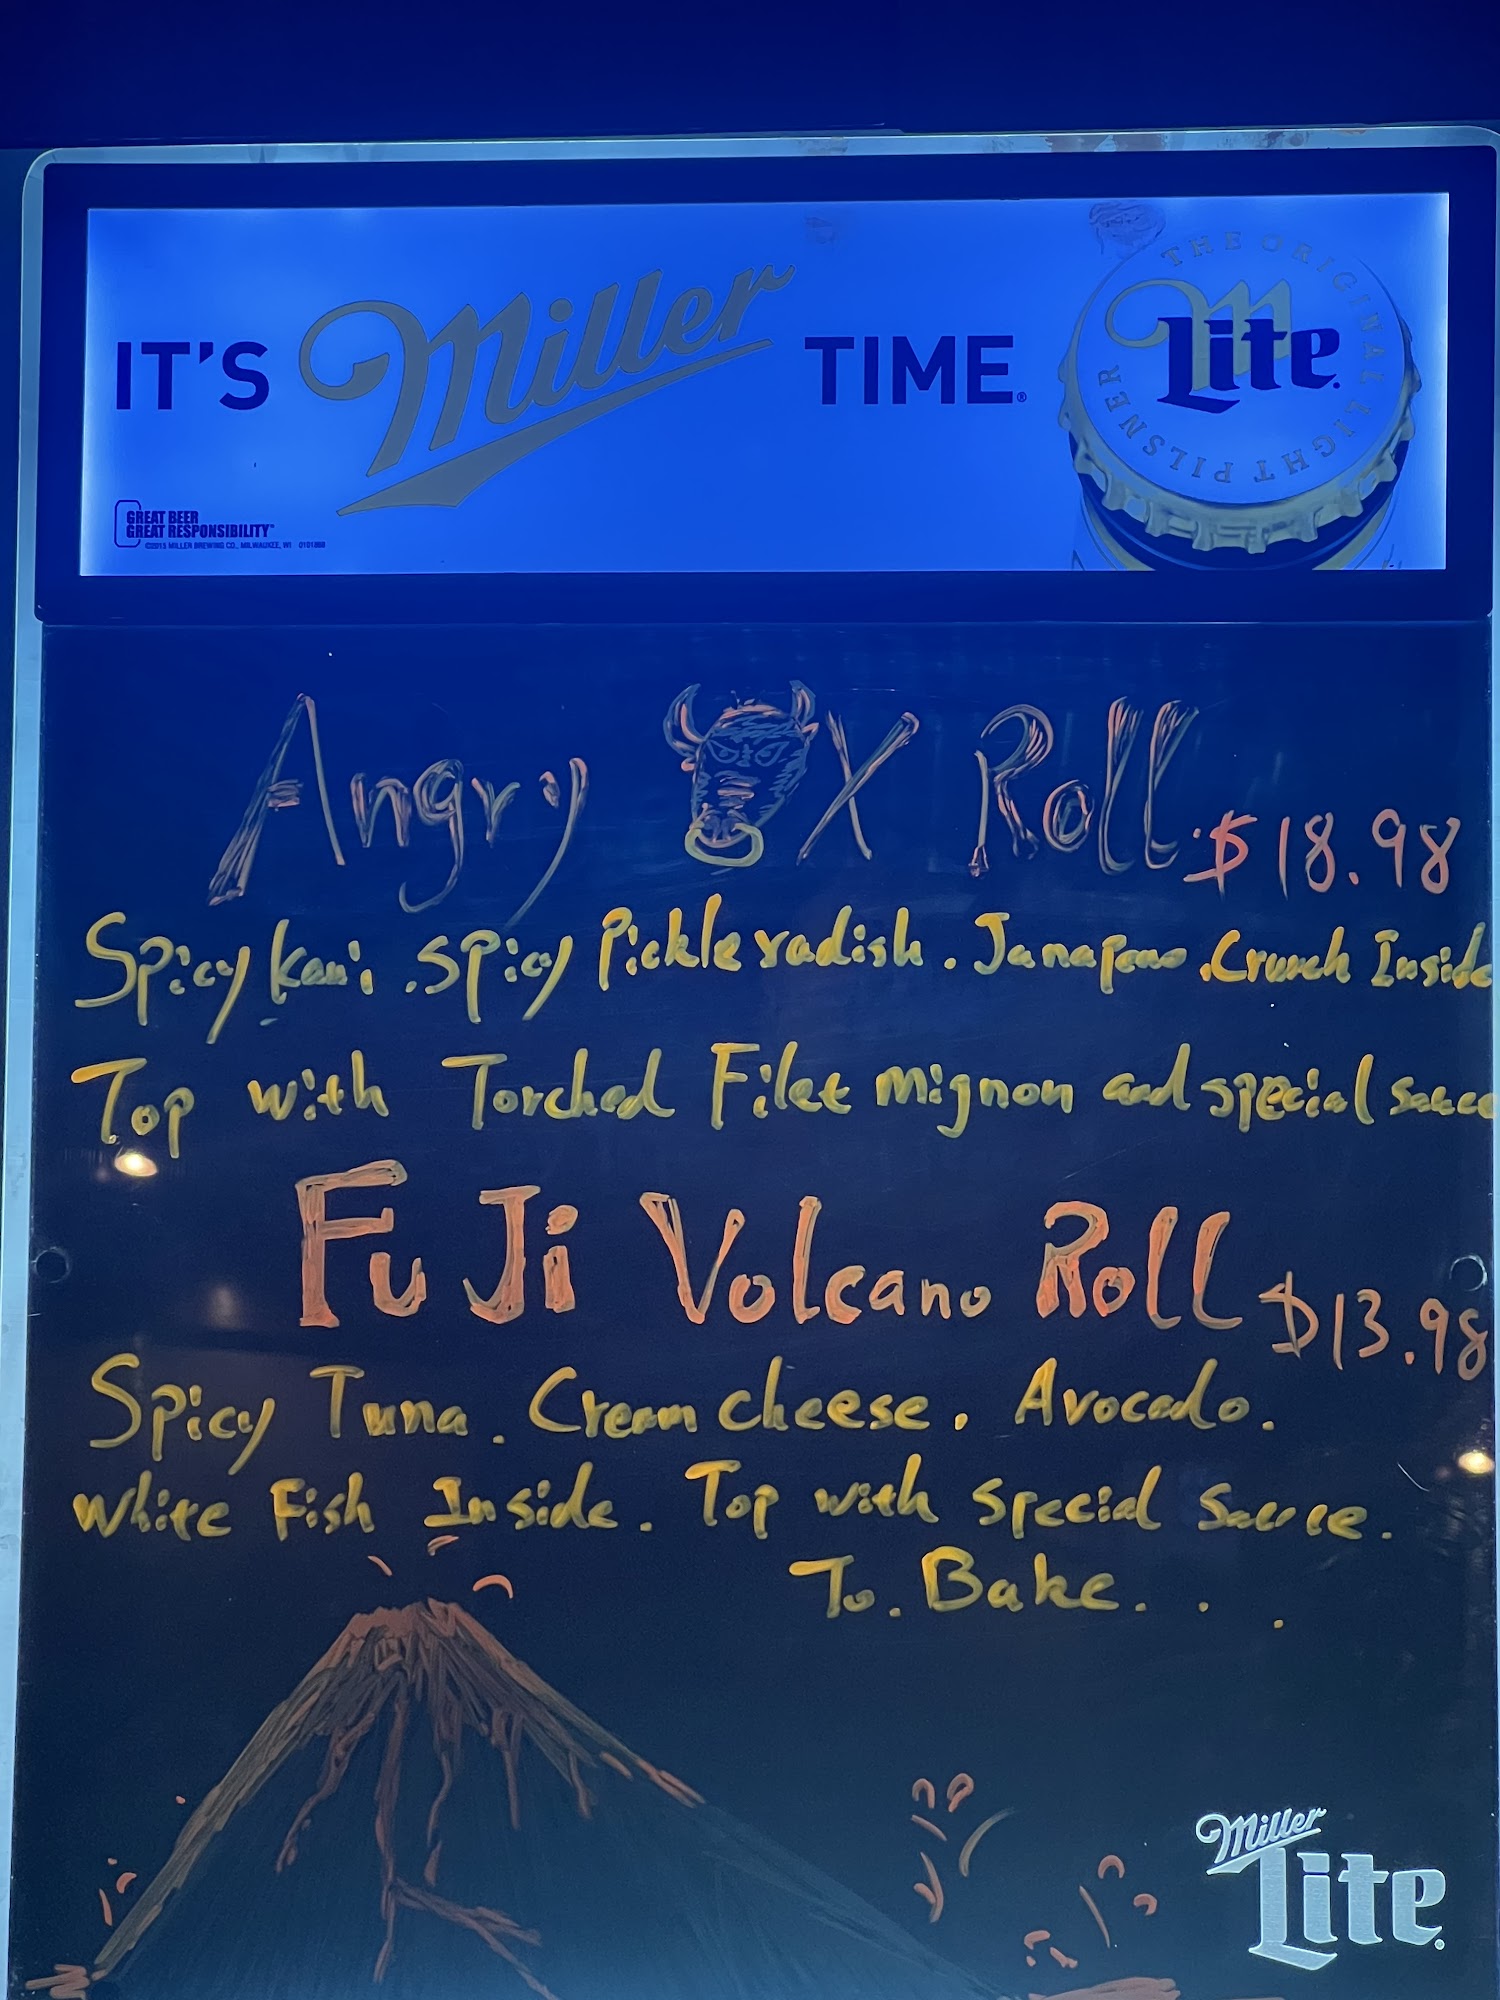 IT'S Miller TIME.®
THE ORIGINAL LIGHT PILSNER
Lite
GREAT BEER
GREAT RESPONSIBILITY™
©2015 MILLER BREWING CO., MILWAUKEE, WI
Angry OX Roll $18.98
Spicy Kani. Spicy Pickle radish. Janapeno. Crunch Inside
Top with Torched Filet mignon and special sauce
FuJi Volcano Roll $13.98
Spicy Tuna. Cream cheese. Avocado.
White Fish Inside. Top with special Sauce.
To. Bake. . .
Miller
Lite